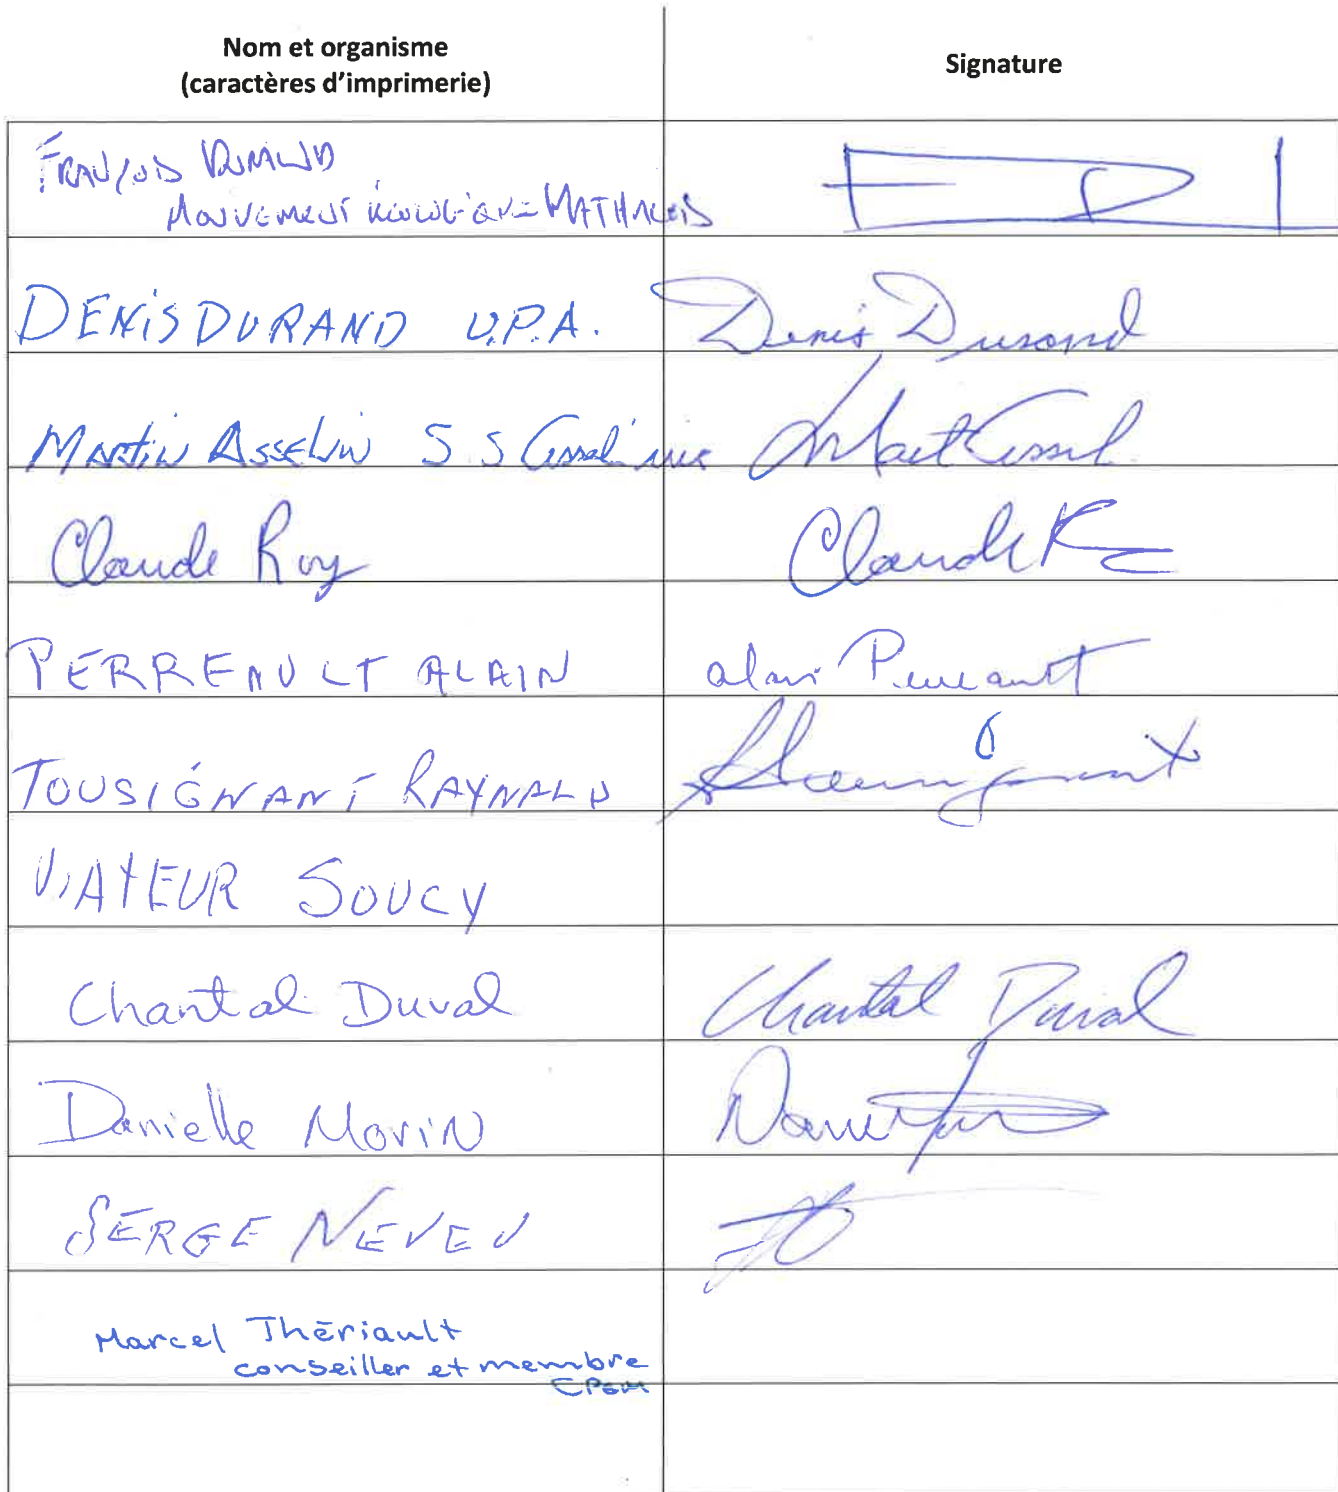 Nom et organisme
(caractères d'imprimerie)
Signature
FRANÇOIS DURAND
MOUVEMENT ÉCOLOGIQUE MATHALOIS
DENIS DURAND U.P.A.
Denis Durand
MARTIN ASSELIN S S
Claude Roy
Claude R
PERREAULT ALAIN
alain Perreault
TOUSIGNANT RAYNALD
VIATEUR SOUCY
Chantal Duval
Chantal Duval
Danielle Morin
SERGE NEVEU
Marcel Thériault
conseiller et membre